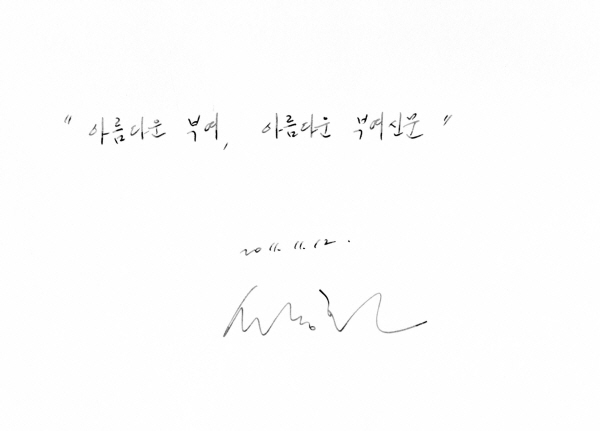 "아름다운 부여, 아름다운 부여신문"
2011. 11. 12.